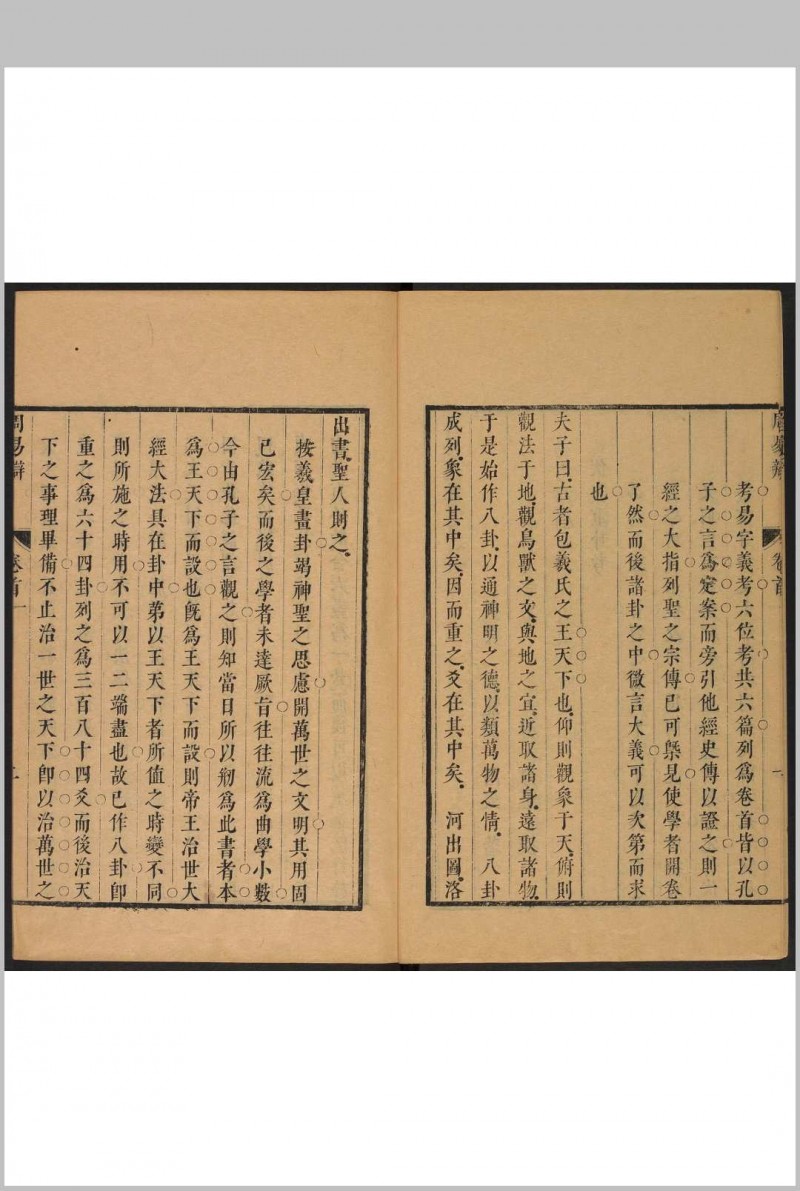 周易辯 卷首 一
考易字義考六位考共六篇列爲卷首皆以孔
子之言爲定案而旁引他經史傳以證之則一
經之大指列聖之宗傳已可槩見使學者開卷
了然而後諸卦之中微言大義可以次第而求
也
夫子曰古者包羲氏之王天下也仰則觀象于天俯則
觀法于地觀鳥獸之文與地之宜近取諸身遠取諸物
于是始作八卦以通神明之德以類萬物之情 八卦
成列象在其中矣因而重之爻在其中矣 河出圖洛
出書聖人則之
按羲皇畫卦竭神聖之思慮開萬世之文明其用固
已宏矣而後之學者未達厥旨往往流爲曲學小數
今由孔子之言觀之則知當日所以剏爲此書者本
爲王天下而設也旣爲王天下而設則帝王治世大
經大法具在卦中第以王天下者所值之時變不同
則所施之時用不可以一二端盡也故已作八卦卽
重之爲六十四卦列之爲三百八十四爻而後治天
下之事理畢備不止治一世之天下卽以治萬世之
周易辯 卷首一 二